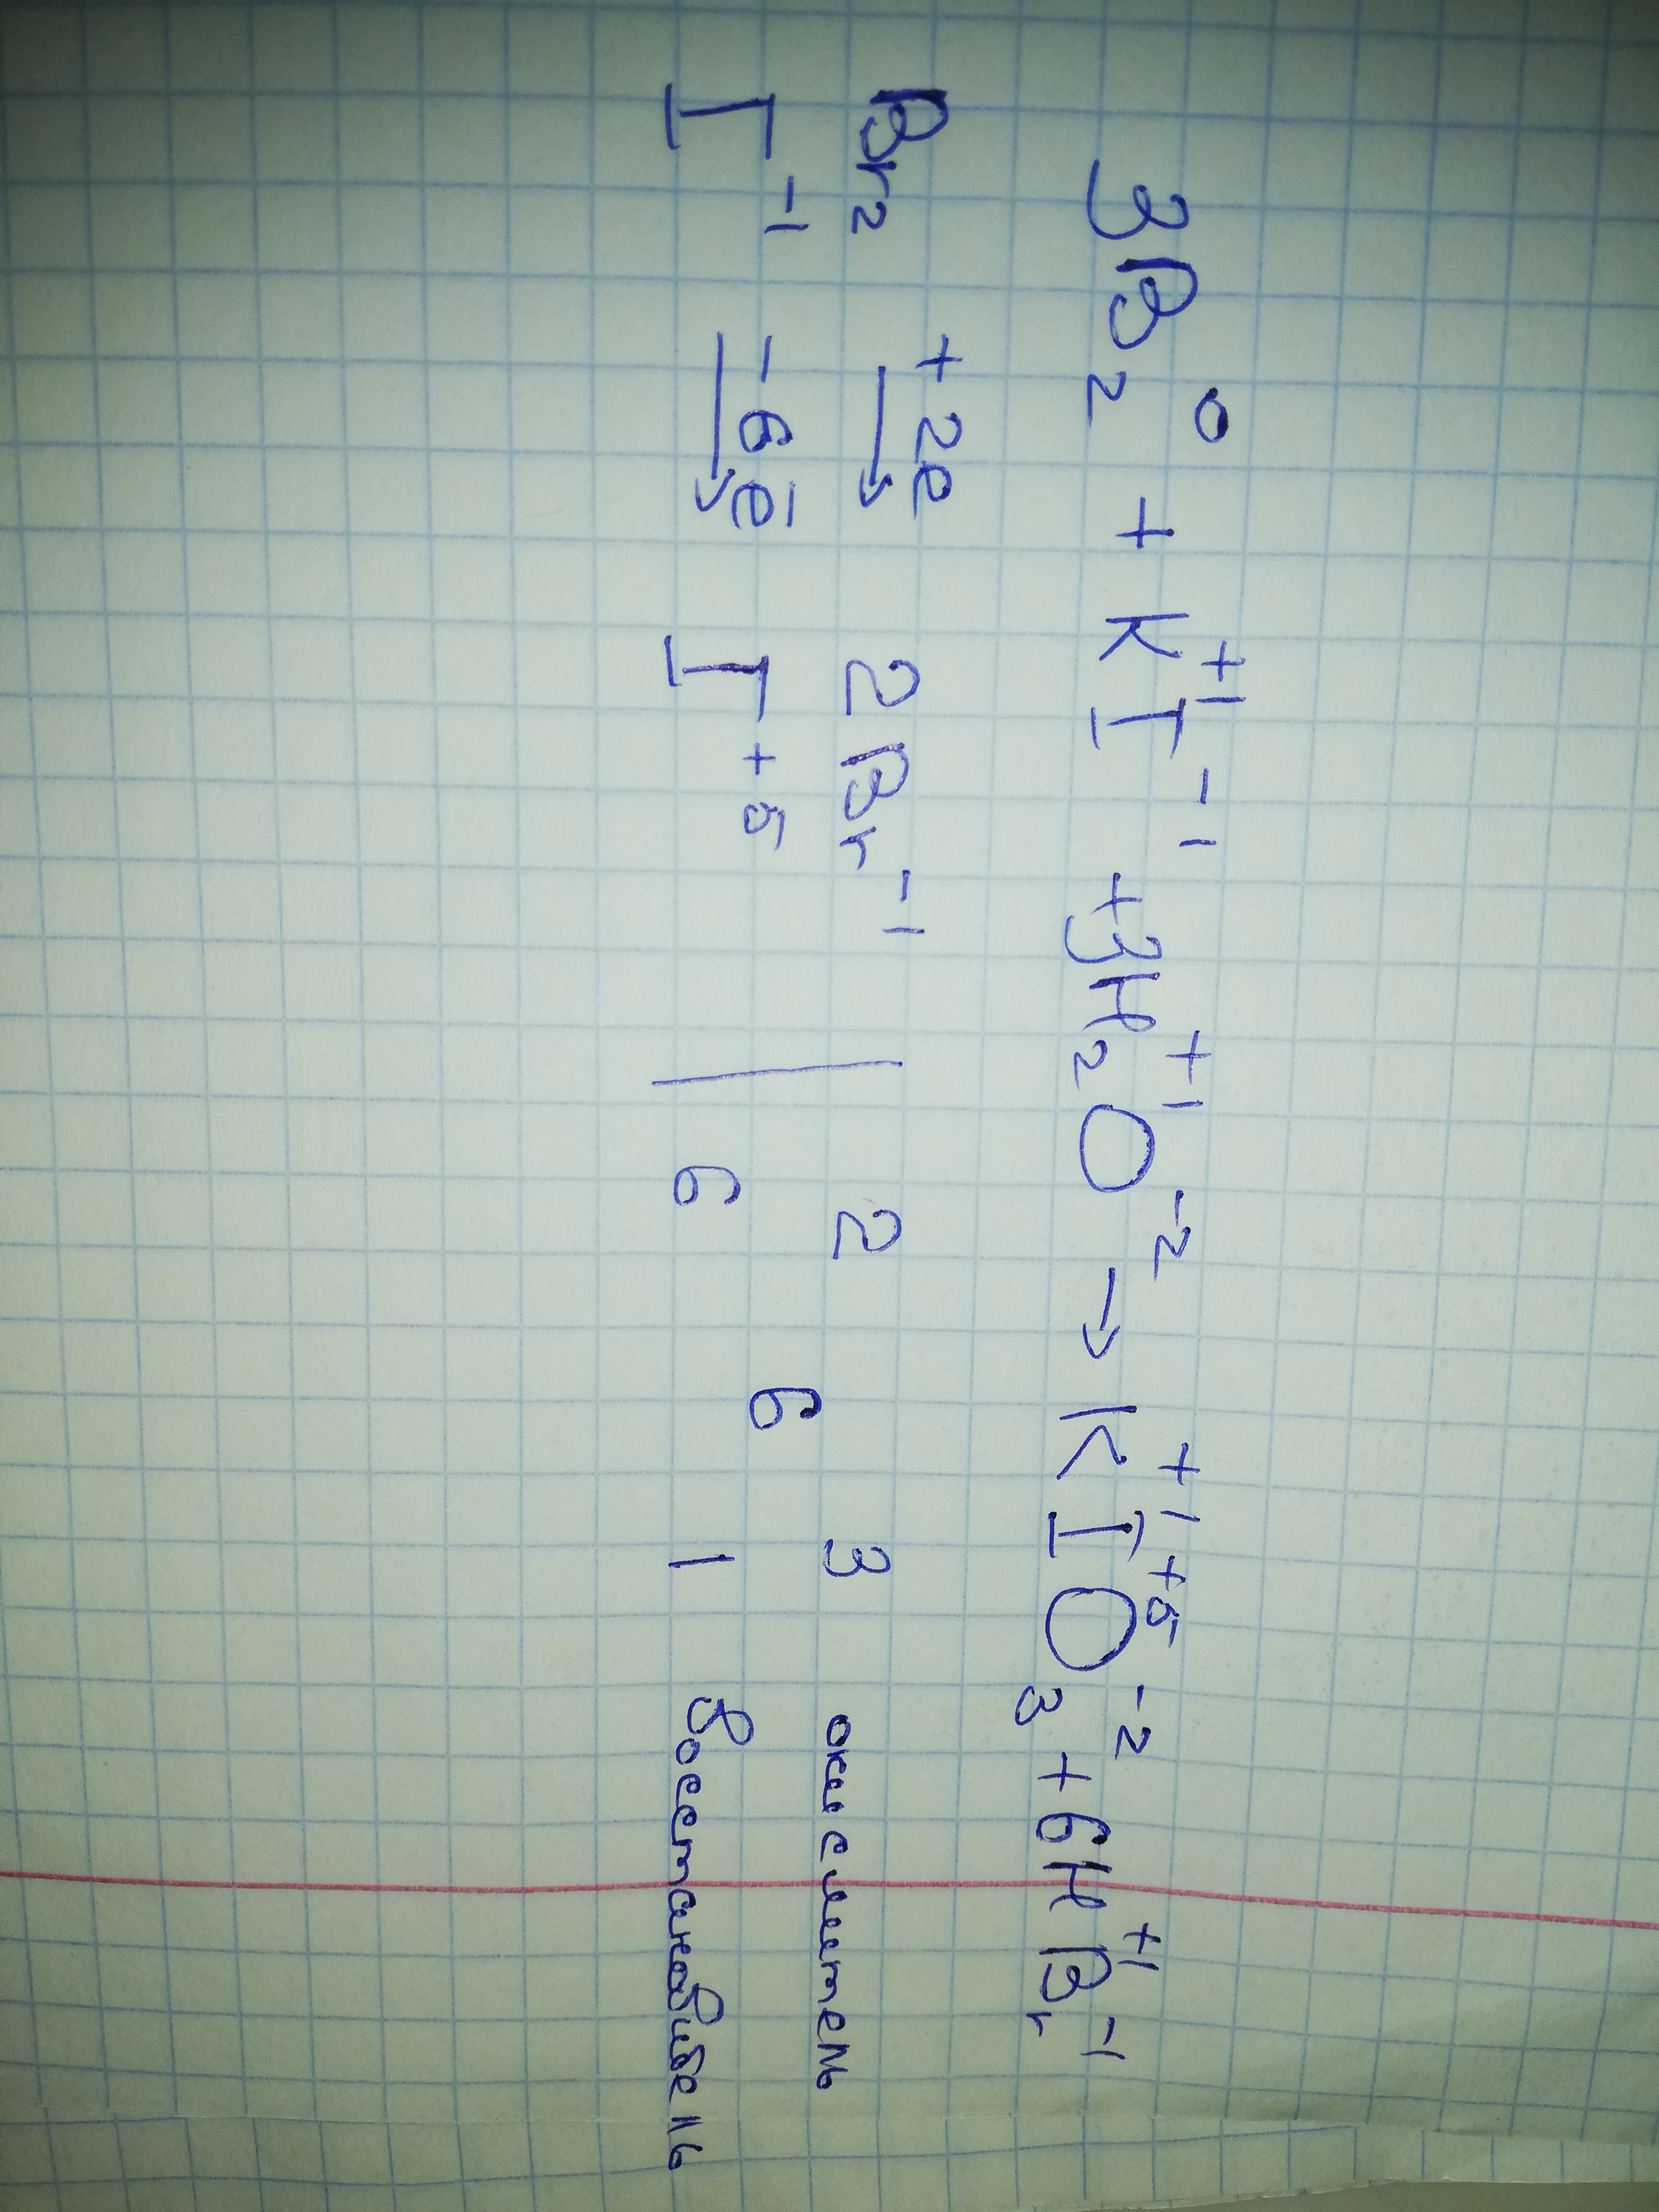 3B₂⁰ + K⁺¹I⁻¹ + 3H₂⁺¹O⁻² → K⁺¹I⁺⁵O₃⁻² + 6H⁺¹Br⁻¹
Br₂ +2e → 2Br⁻¹ | 2 6 3 окислитель
I⁻¹ -6ē → I⁺⁵ | 6 1 восстановитель